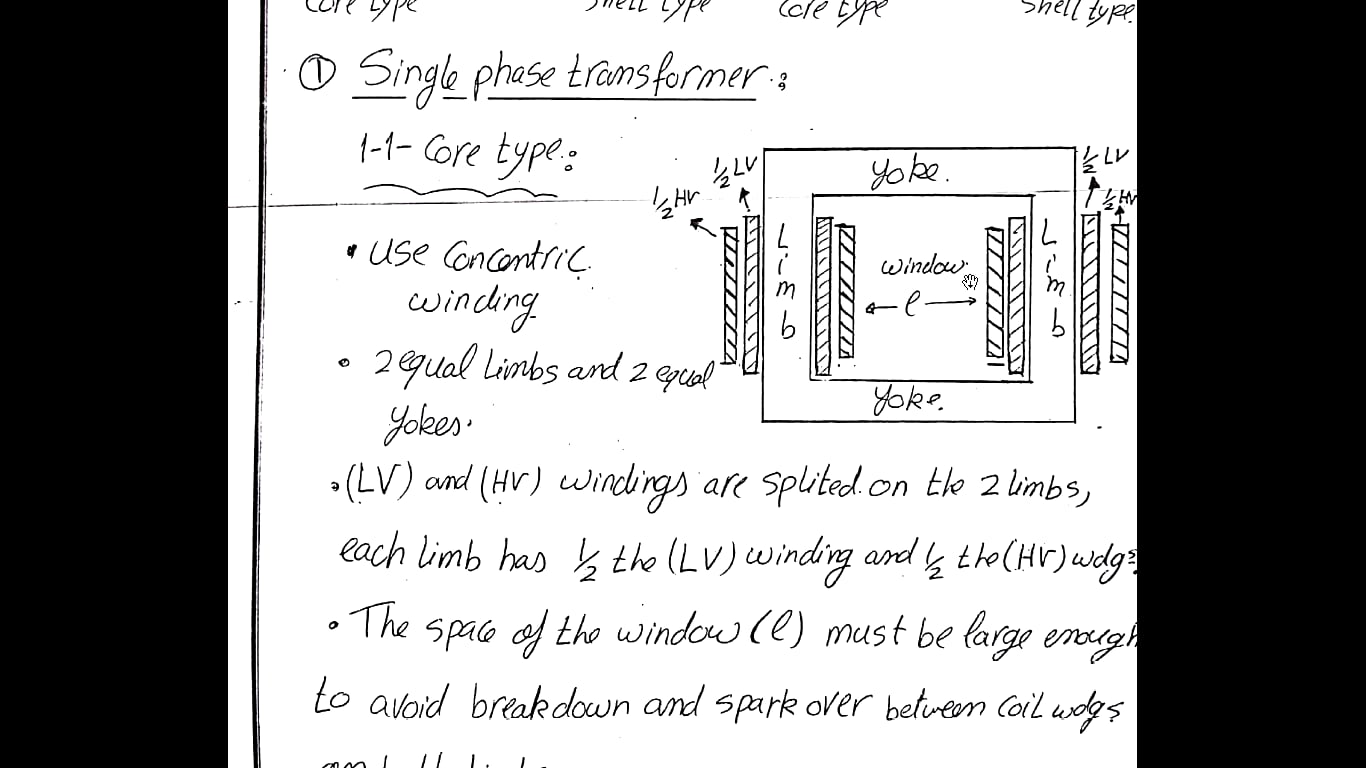 Core type Shell type Core type Shell type.
① Single phase transformer :
1-1- Core type :
½ HV ½ LV Yoke. ½ LV ½ HV
Limb window. Limb
l
Yoke.
• Use Concentric
winding
• 2 equal Limbs and 2 equal
Yokes.
• (LV) and (HV) windings are splited on the 2 limbs,
each limb has ½ the (LV) winding and ½ the (HV) wdgs.
• The space of the window (l) must be large enough
to avoid breakdown and spark over between coil wdgs